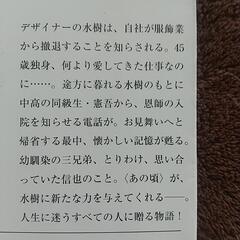 デザイナーの水樹は、自社が服飾業
から撤退することを知らされる。45
歳独身、何より愛してきた仕事なの
に……。途方に暮れる水樹のもとに
中高の同級生・憲吾から、恩師の入
院を知らせる電話が。お見舞いへと
帰省する最中、懐かしい記憶が甦る。
幼馴染の三兄弟、とりわけ、思い合
っていた信也のこと。〈あの頃〉が、
水樹に新たな力を与えてくれる――。
人生に迷うすべての人に贈る物語！